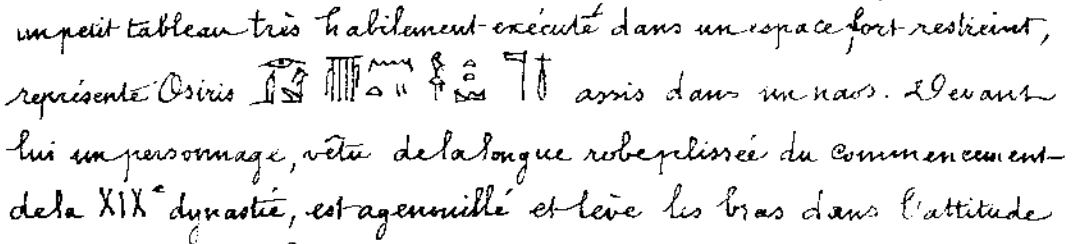 un petit tableau très habilement exécuté dans un espace fort restreint,
représente Osiris assis dans un naos. Devant
lui un personnage, vêtu de la longue robe plissée du commencement
de la XIXe dynastie, est agenouillé et lève les bras dans l'attitude